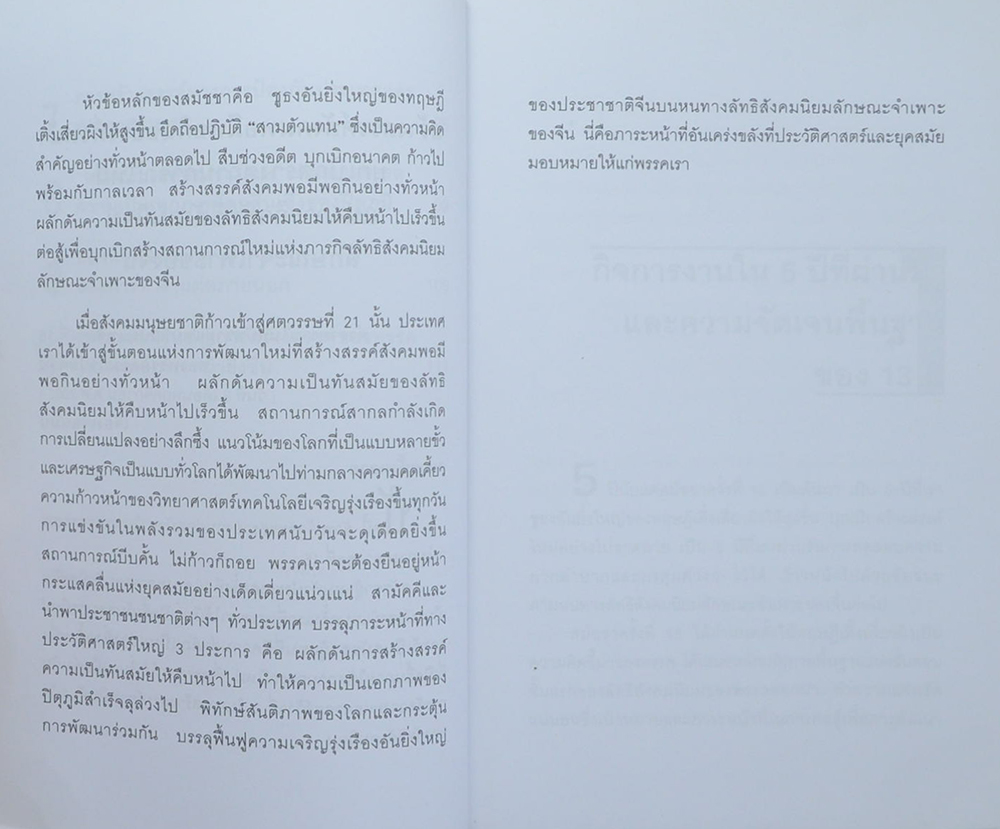 หัวข้อหลักของสมัชชาคือ ชูธงอันยิ่งใหญ่ของทฤษฎี
เติ้งเสี่ยวผิงให้สูงขึ้น ยึดถือปฏิบัติ “สามตัวแทน” ซึ่งเป็นความคิด
สำคัญอย่างทั่วหน้าตลอดไป สืบช่วงอดีต บุกเบิกอนาคต ก้าวไป
พร้อมกับกาลเวลา สร้างสรรค์สังคมพอมีพอกินอย่างทั่วหน้า
ผลักดันความเป็นทันสมัยของลัทธิสังคมนิยมให้คืบหน้าไปเร็วขึ้น
ต่อสู้เพื่อบุกเบิกสร้างสถานการณ์ใหม่แห่งภารกิจลัทธิสังคมนิยม
ลักษณะจำเพาะของจีน
เมื่อสังคมมนุษยชาติก้าวเข้าสู่ศตวรรษที่ 21 นั้น ประเทศ
เราได้เข้าสู่ขั้นตอนแห่งการพัฒนาใหม่ที่สร้างสรรค์สังคมพอมี
พอกินอย่างทั่วหน้า ผลักดันความเป็นทันสมัยของลัทธิ
สังคมนิยมให้คืบหน้าไปเร็วขึ้น สถานการณ์สากลกำลังเกิด
การเปลี่ยนแปลงอย่างลึกซึ้ง แนวโน้มของโลกที่เป็นแบบหลายขั้ว
และเศรษฐกิจเป็นแบบทั่วโลกได้พัฒนาไปท่ามกลางความคดเคี้ยว
ความก้าวหน้าของวิทยาศาสตร์เทคโนโลยีเจริญรุ่งเรืองขึ้นทุกวัน
การแข่งขันในพลังรวมของประเทศนับวันจะดุเดือดยิ่งขึ้น
สถานการณ์บีบคั้น ไม่ก้าวก็ถอย พรรคเราจะต้องยืนอยู่หน้า
กระแสคลื่นแห่งยุคสมัยอย่างเด็ดเดี่ยวแน่วแน่ สามัคคีและ
นำพาประชาชนชนชาติต่างๆ ทั่วประเทศ บรรลุภาระหน้าที่ทาง
ประวัติศาสตร์ใหญ่ 3 ประการ คือ ผลักดันการสร้างสรรค์
ความเป็นทันสมัยให้คืบหน้าไป ทำให้ความเป็นเอกภาพของ
ปิตุภูมิสำเร็จลุล่วงไป พิทักษ์สันติภาพของโลกและกระตุ้น
การพัฒนาร่วมกัน บรรลุฟื้นฟูความเจริญรุ่งเรืองอันยิ่งใหญ่
ของประชาชาติจีนบนหนทางลัทธิสังคมนิยมลักษณะจำเพาะ
ของจีน นี่คือภาระหน้าที่อันเคร่งขลังที่ประวัติศาสตร์และยุคสมัย
มอบหมายให้แก่พรรคเรา